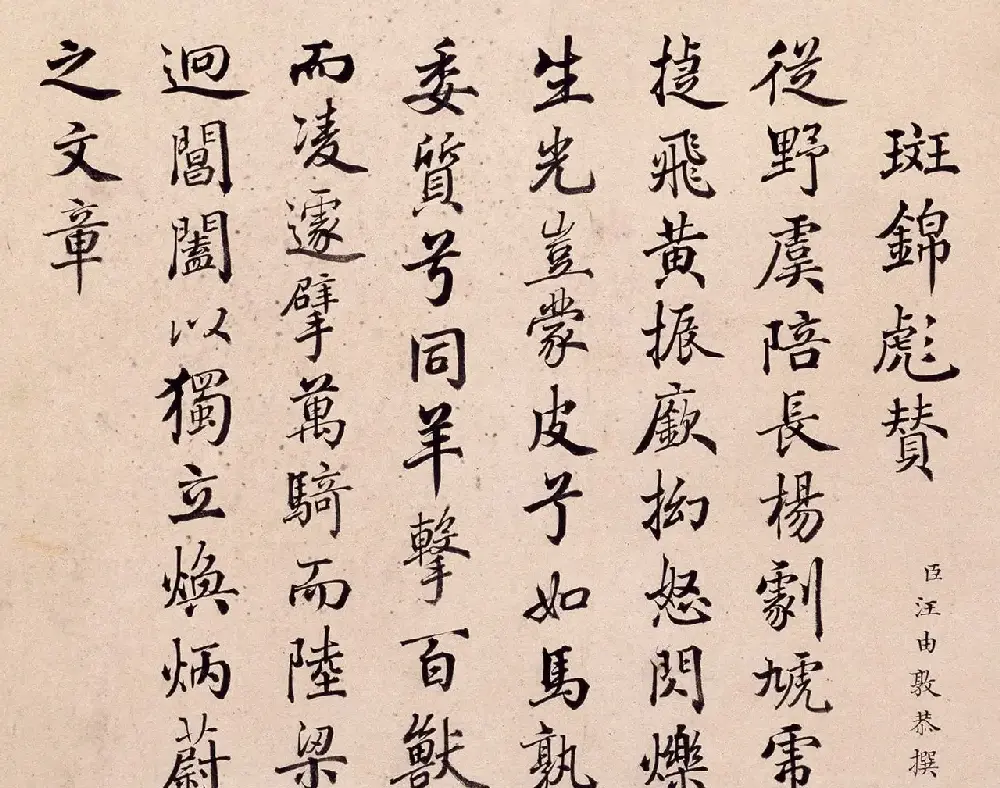 斑錦彪贊
臣汪由敦恭撰
從野虞陪長楊劇虓
捷飛黃振厥拗怒閃爍
生光豈蒙皮兮如馬孰
委質兮同羊擊百獸
而凌遽擘萬騎而陸梁
迴閶闔以獨立煥炳蔚
之文章